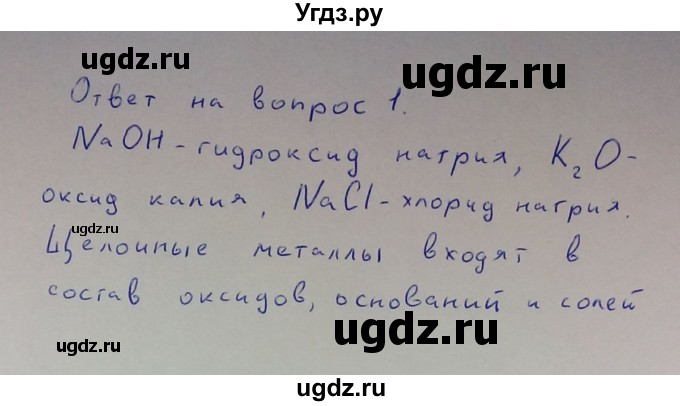 Угдз.ру
ugdz.ru
ugdz.ru
Ответ на вопрос 1.
NaOH - гидроксид натрия, K₂O -
оксид калия, NaCl - хлорид натрия.
ugdz.ru
Щелочные металлы входят в
состав оксидов, оснований и солей
ugdz.ru
ugdz.ru
ugdz.ru